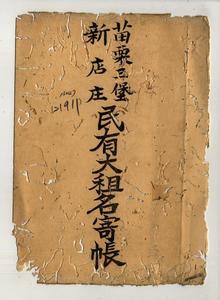 苗栗三堡
新店庄
民有大租名寄帳